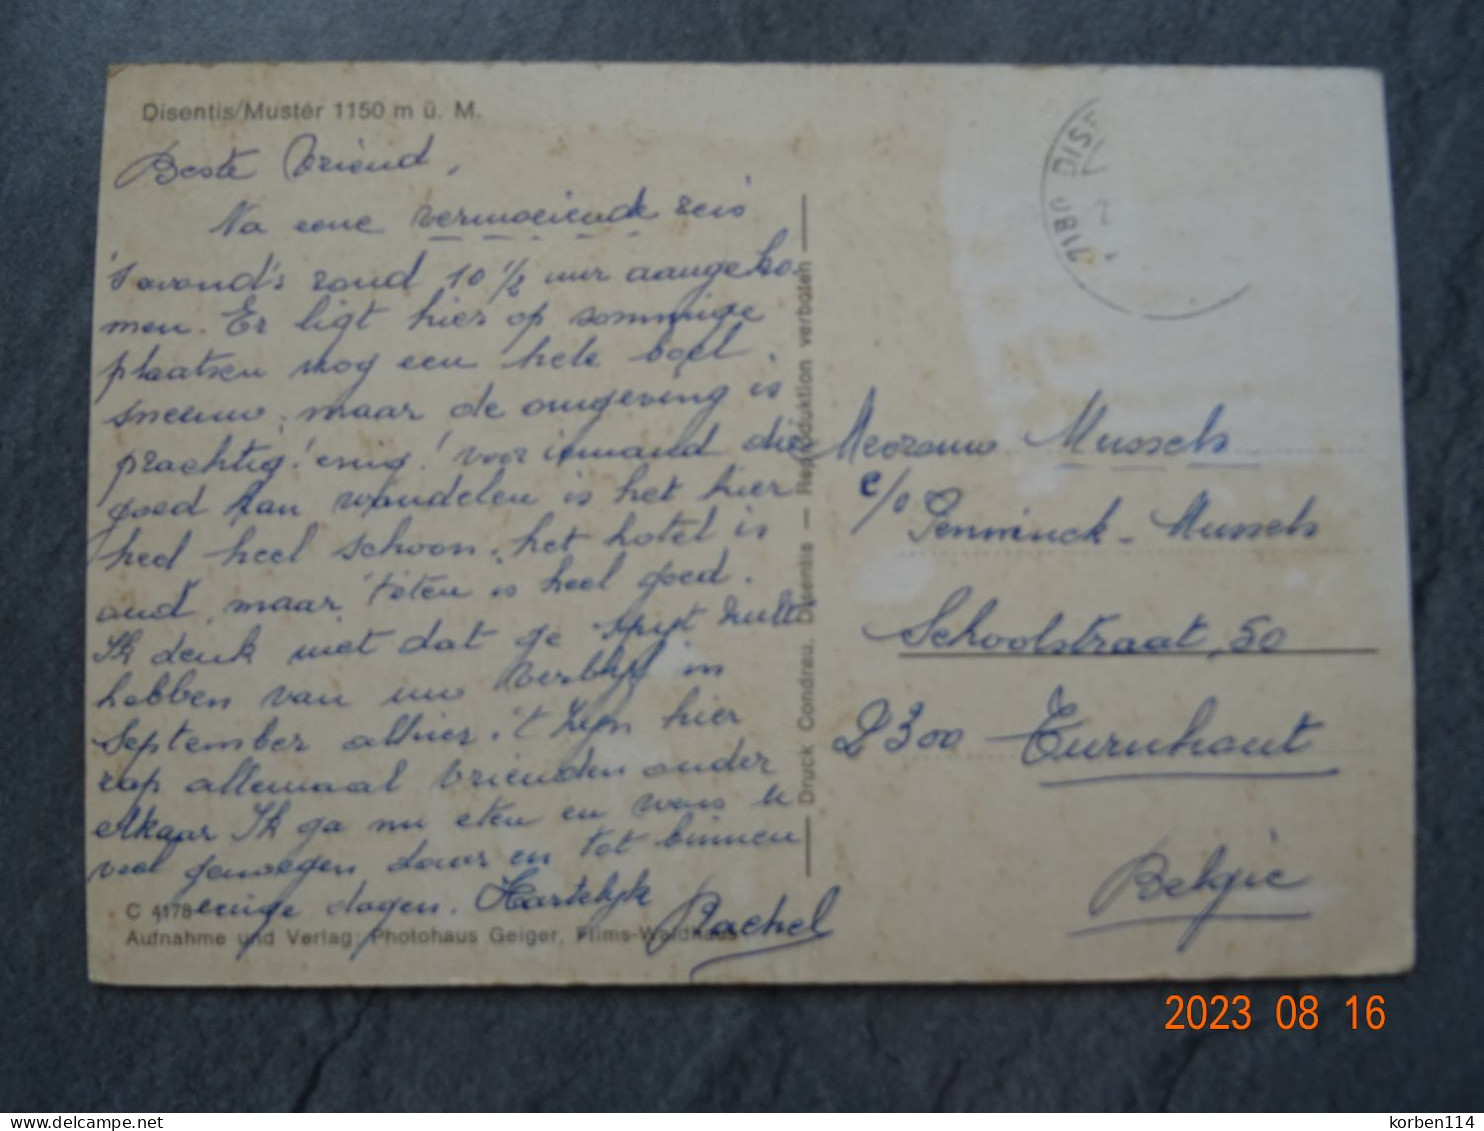 Disentis/Mustér 1150 m ü. M.
Beste Vriend,
Na eene vermoeiende reis
's avond's rond 10 1/2 uur aangeko-
men. Er ligt hier op sommige
plaatsen nog een hele boel
sneeuw, maar de omgeving is
prachtig! enig! voor iemand die
goed kan wandelen is het hier
heel heel schoon, het hotel is
oud, maar 't eten is heel goed.
Ik denk niet dat ge spijt zult
hebben van uw verblijf in
September alhier. 't zijn hier
rap allemaal vrienden onder
elkaar Ik ga nu eten en wens u
veel genoegen daar en tot binnen
enige dagen. Hartelijk
Rachel
C 4178
Aufnahme und Verlag: Photohaus Geiger, Flims-Waldhaus
Druck Condrau, Disentis — Reproduktion verboten
7180 DISE
Mevrouw Mussels
c/o Penninck - Mussels
Schoolstraat, 50
2300 Turnhout
België
2023 08 16
delcampe.net
korben114